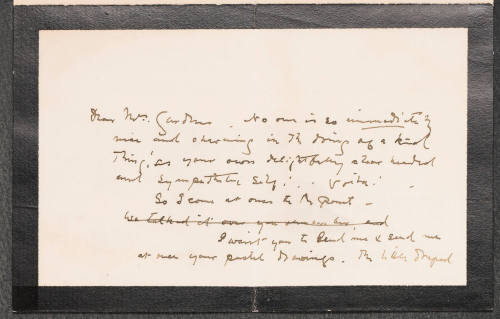 Dear Mrs. Gardner. No one is so immediately
nice and charming in the doing of a kind
thing, as your own delightfully clear headed
and sympathetic self! .. Voila!
So I come at once to the point -
We talked it over you remember, and
I want you to lend me & send me
at once your pastel drawings. The little draped